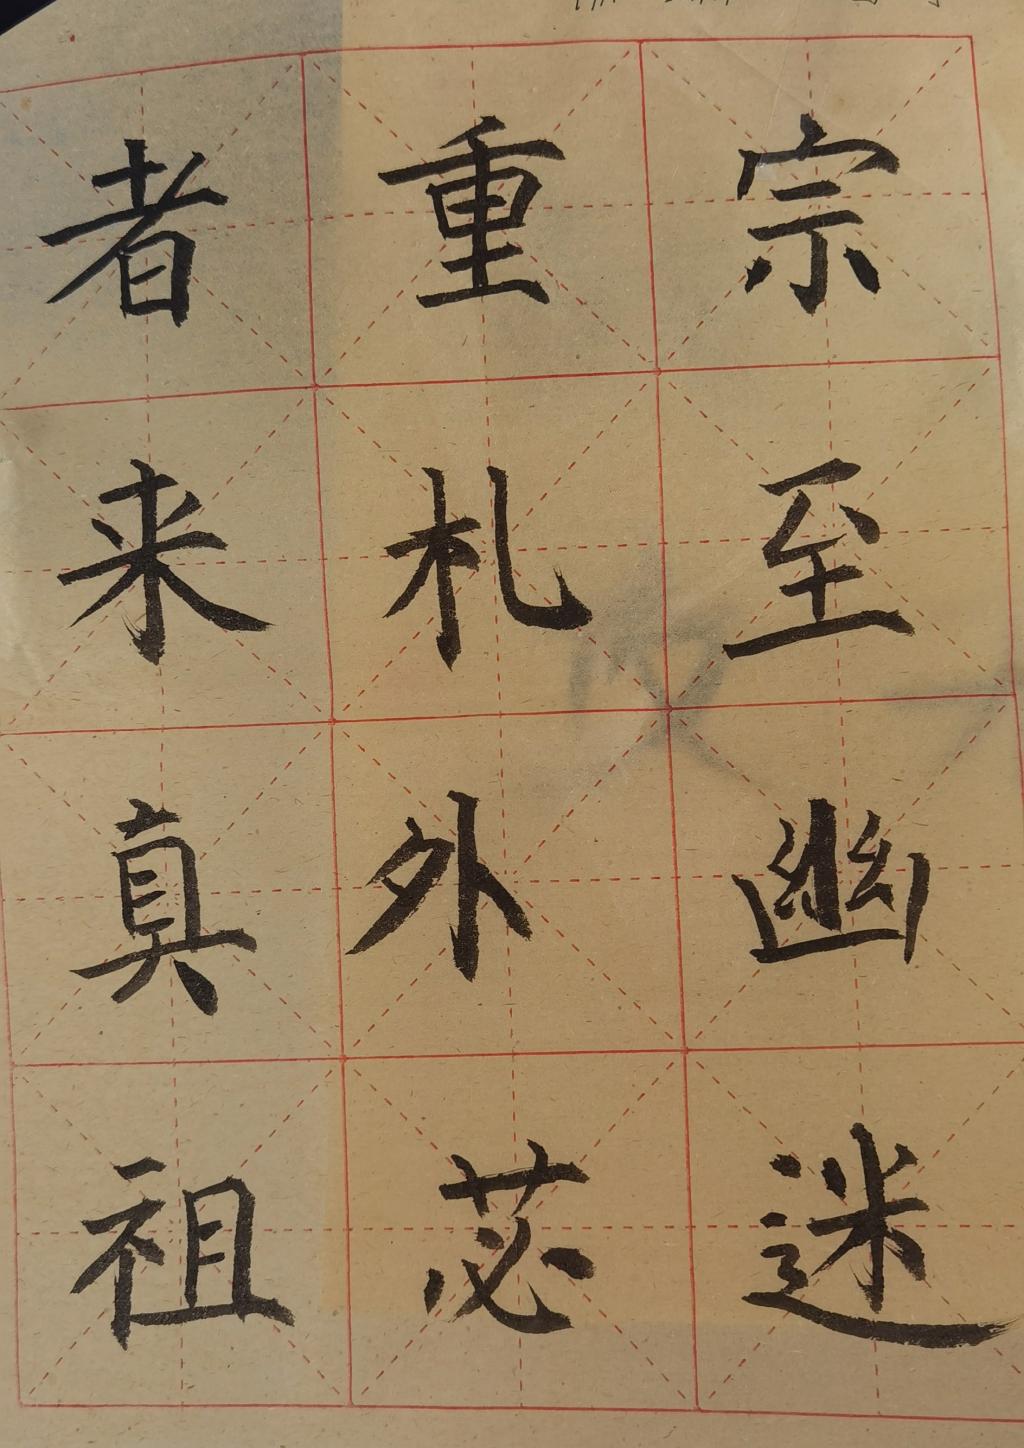 宗至幽迷
重札外苾
者来真祖